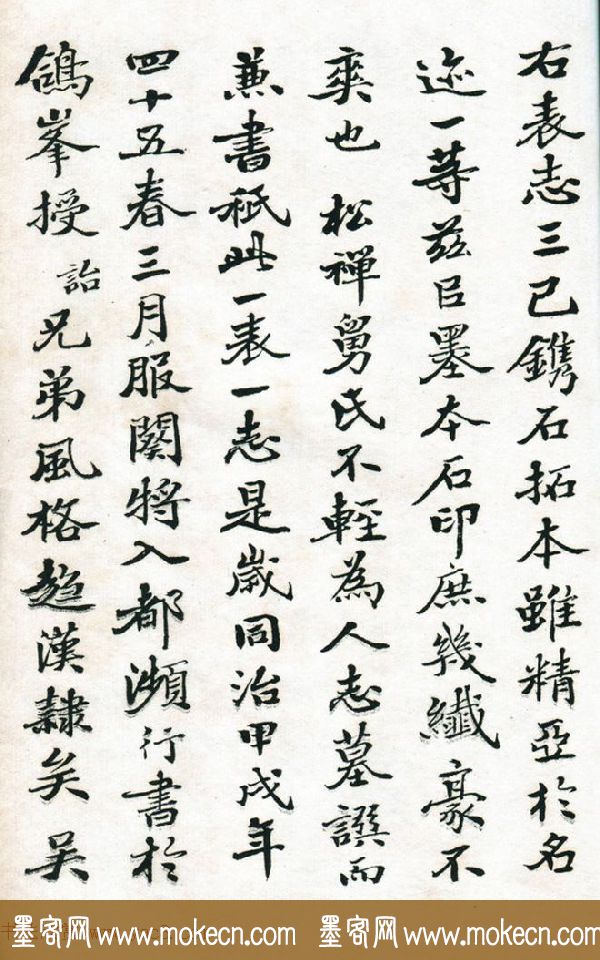 右表志三已鐫石拓本雖精亞於名
迹一等茲㠯墨本石印庶幾纖豪不
爽也 松禪舅氏不輕為人志墓譔而
兼書秖此一表一志是歲同治甲戌年
四十五春三月服闋將入都瀕行書於
鴿峯授 詒兄弟風格超漢隸矣 吴
墨客网 www.mokecn.com 墨客网 www.mokecn.com